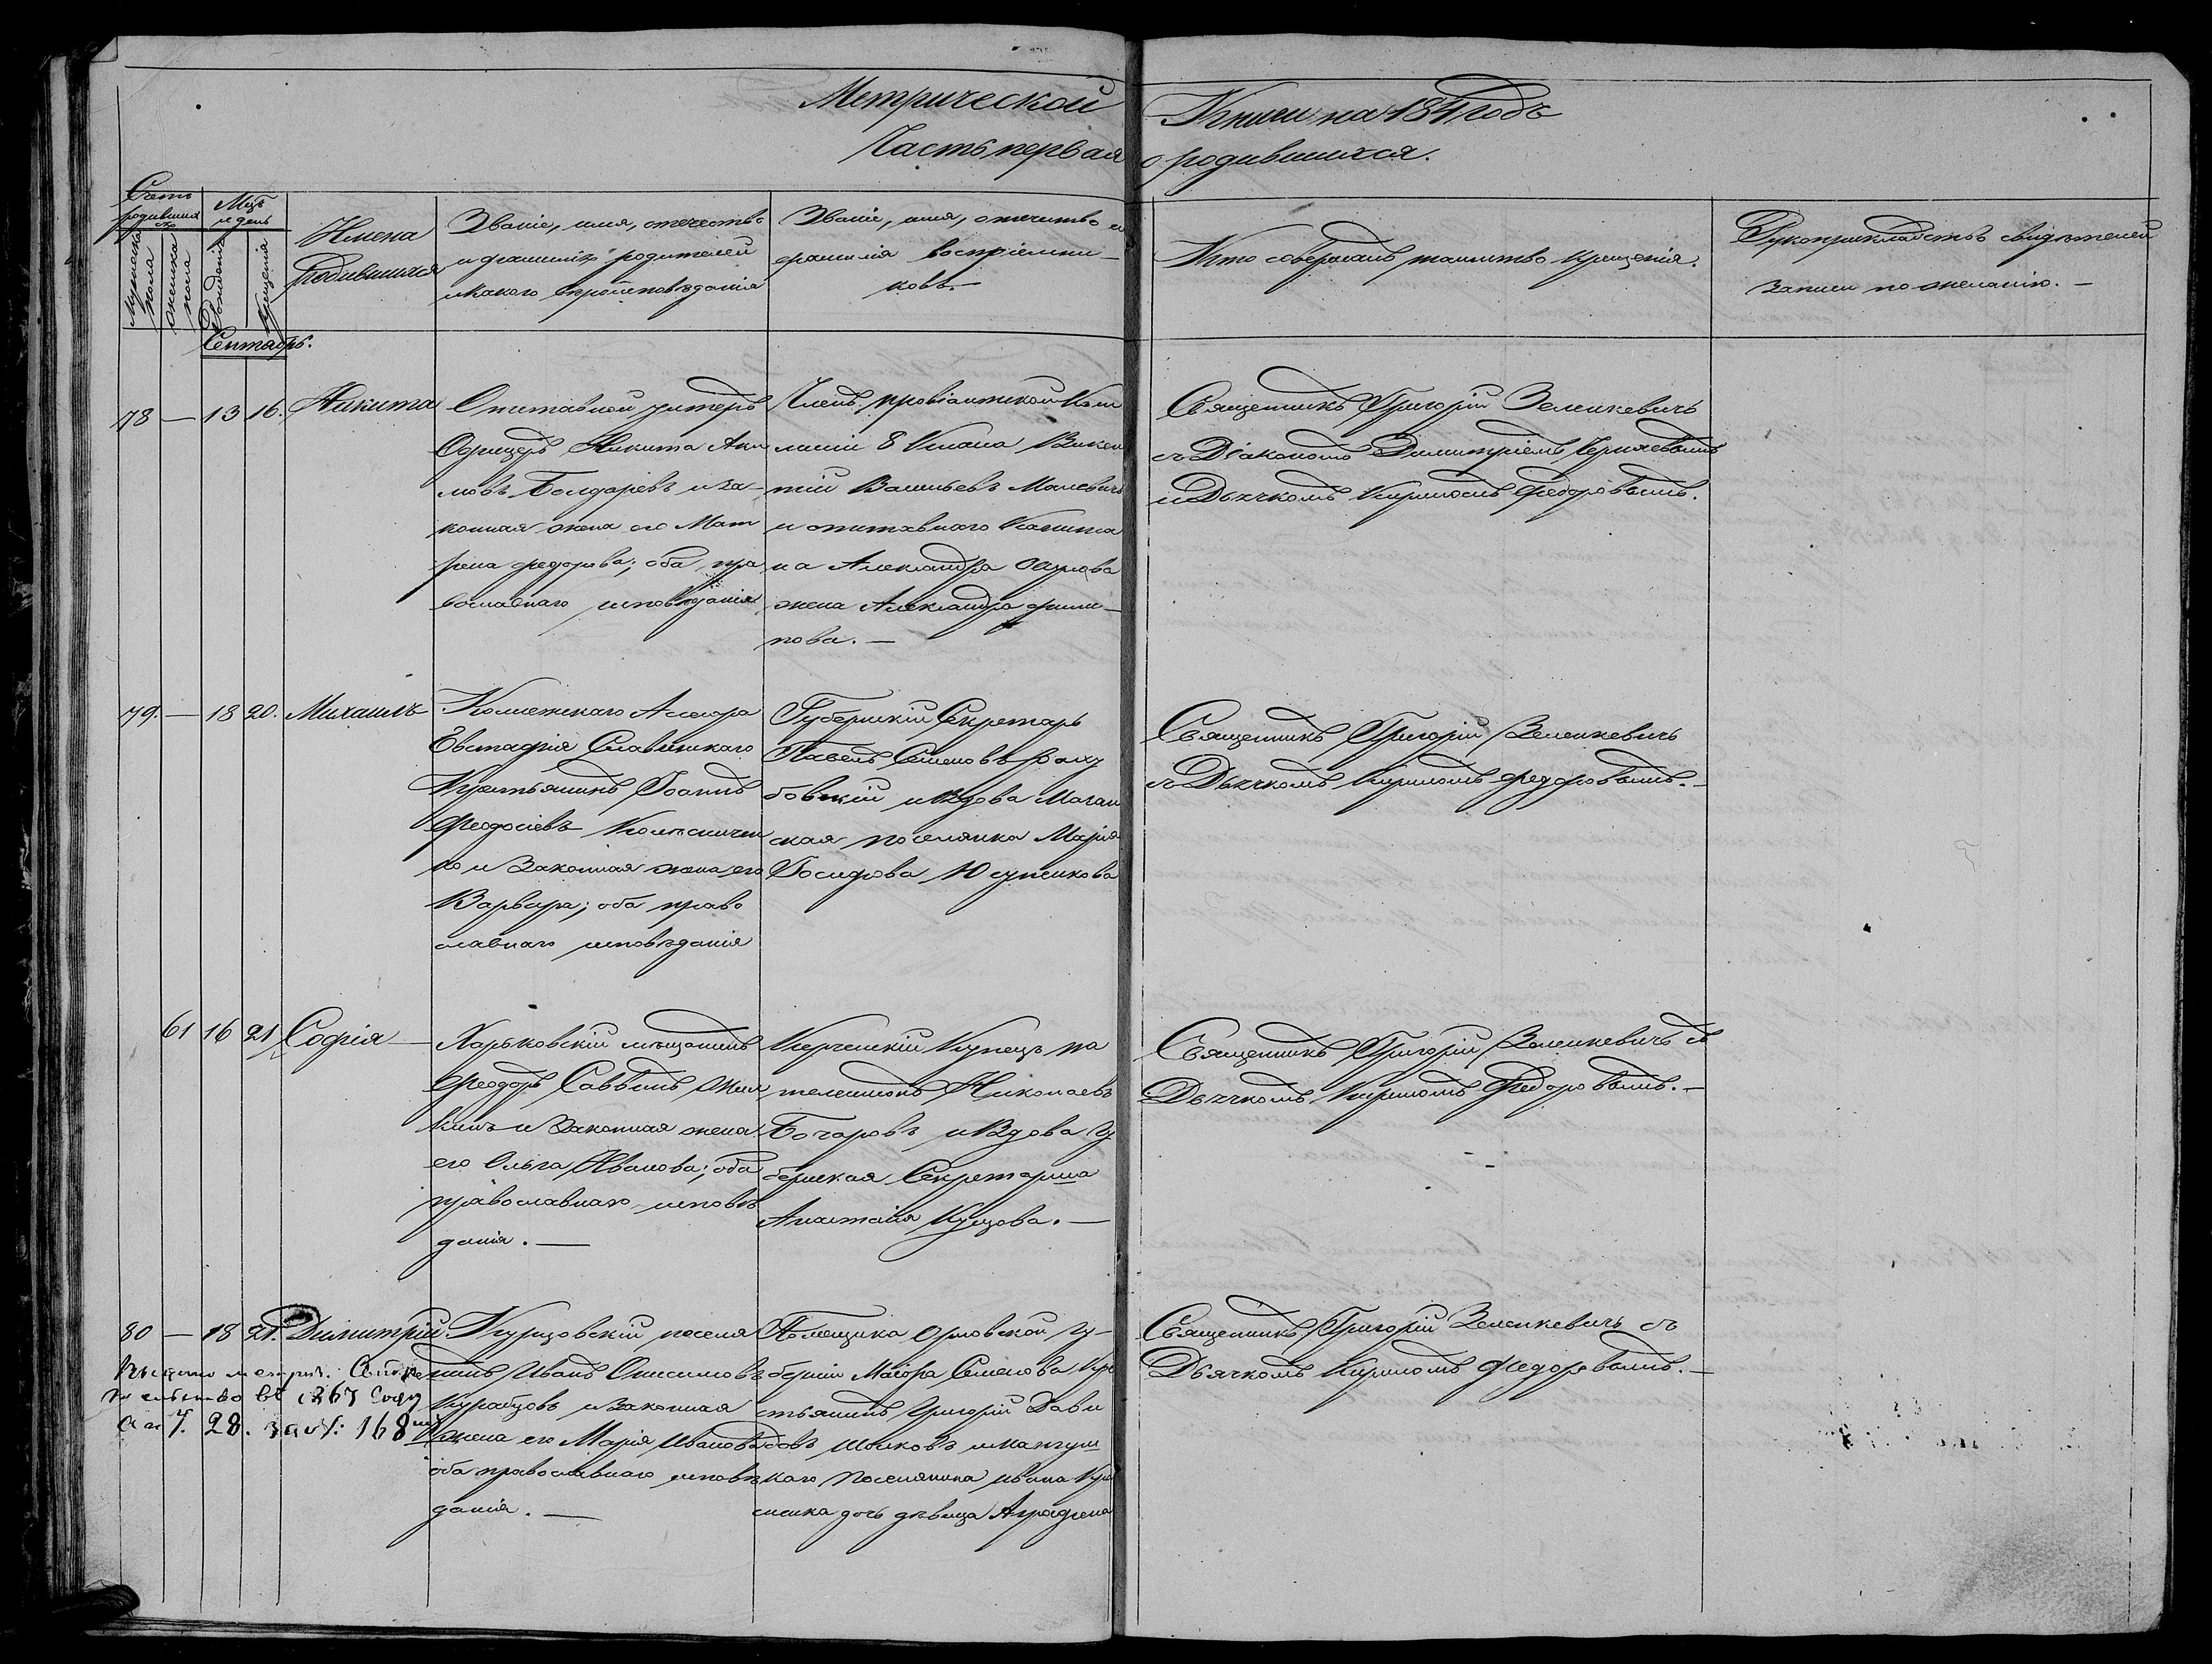 Метрической Книги на 184 годъ
Часть первая о родившихся.
Счетъ родившихся
Мужеска пола
Женска пола
Мѣсяцъ и день
Рожденія
Крещенія
Имена Родившихся
Званіе, имя, отечество
и фамилія родителей
и какого вѣроисповѣданія
Званіе, имя, отечество и
фамилія воспріемни-
ковъ.—
Кто совершалъ таинство крещенія.
Рукоприкладство свидѣтелей
записи по желанію.—
Сентябрь.
78 — 13 16. Никита
Отставной унтеръ
Офицеръ Никита Аки
мовъ Болдаревъ и за-
конная жена его Мат
рена Федорова; оба пра
вославнаго исповѣданія
Членъ провіантской Ком
мисіи 8 Класа Викен
тій Васильевъ Малевичъ
и отставнаго Капита
на Александра
жена Александра Фили-
пова.—
Священникъ Григорій Зеленкевичъ
съ Діакономъ Димитріемъ Чернявымъ
и Дьячкомъ Кириломъ Федоровымъ.
79. — 18 20. Михаилъ
Колежскаго Асесора
Евстафія Славинскаго
Крестьянинъ Іоаннъ
Феодосіевъ Колесничен
ко и Законная жена его
Варвара; оба право
славнаго исповѣданія
Губернскій Секретарь
Павелъ Семеновъ
бовскій и Вдова
ская поселянка Марія
Юсупенкова
Священникъ Григорій Зеленкевичъ
съ Дьячкомъ Кириломъ Федоровымъ.—
61 16 21 Софія —
Харьковскій мѣщанинъ
Феодоръ Саввинъ
кинъ и Законная жена
его Ольга Иванова; оба
православнаго исповѣ
данія.—
Керченскій Купецъ Па
телеимонъ Николаевъ
Бочаровъ и Вдова Гу
бернская Секретарша
Анастасія Купцова.—
Священникъ Григорій Зеленкевичъ съ
Дьячкомъ Кириломъ Федоровымъ.—
80 — 18 21. Димитрій
метрич. Свидѣ
тельство въ 1867 году
28. за №: 168
поселя
нинъ Иванъ Онисимовъ
Курабцовъ и законная
жена его Марія Иванова
оба православнаго исповѣ
данія.—
Помещика Орловской гу-
берніи Маіора Семенова Кре
стьянинъ Григорій Дави
довъ Шолковъ и Мангуш
скаго Поселянина Ивана
дочь дѣвица Аграфена
Священникъ Григорій Зеленкевичъ съ
Дьячкомъ Кириломъ Федоровымъ.—